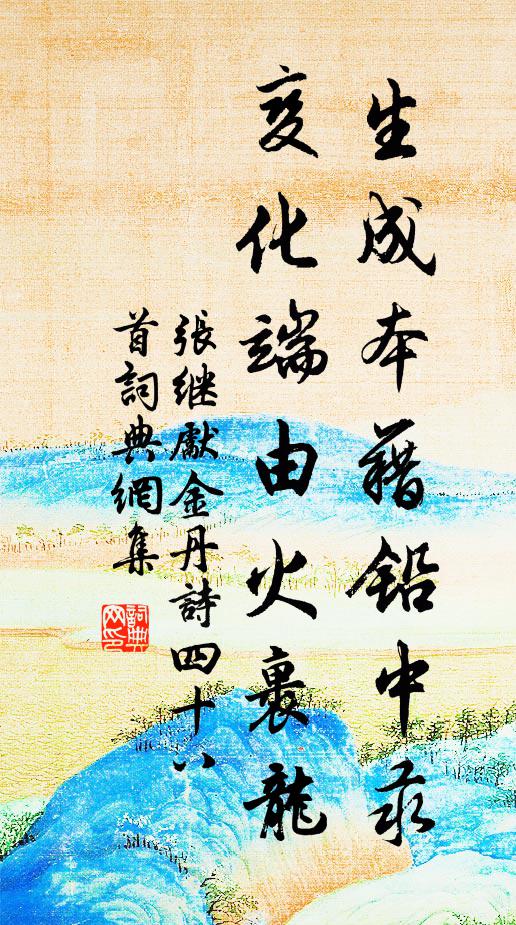 生成本藉鉛中汞
变化端由火裏龍
張継獻金丹詩四十八
首詞典網集
詞典网印